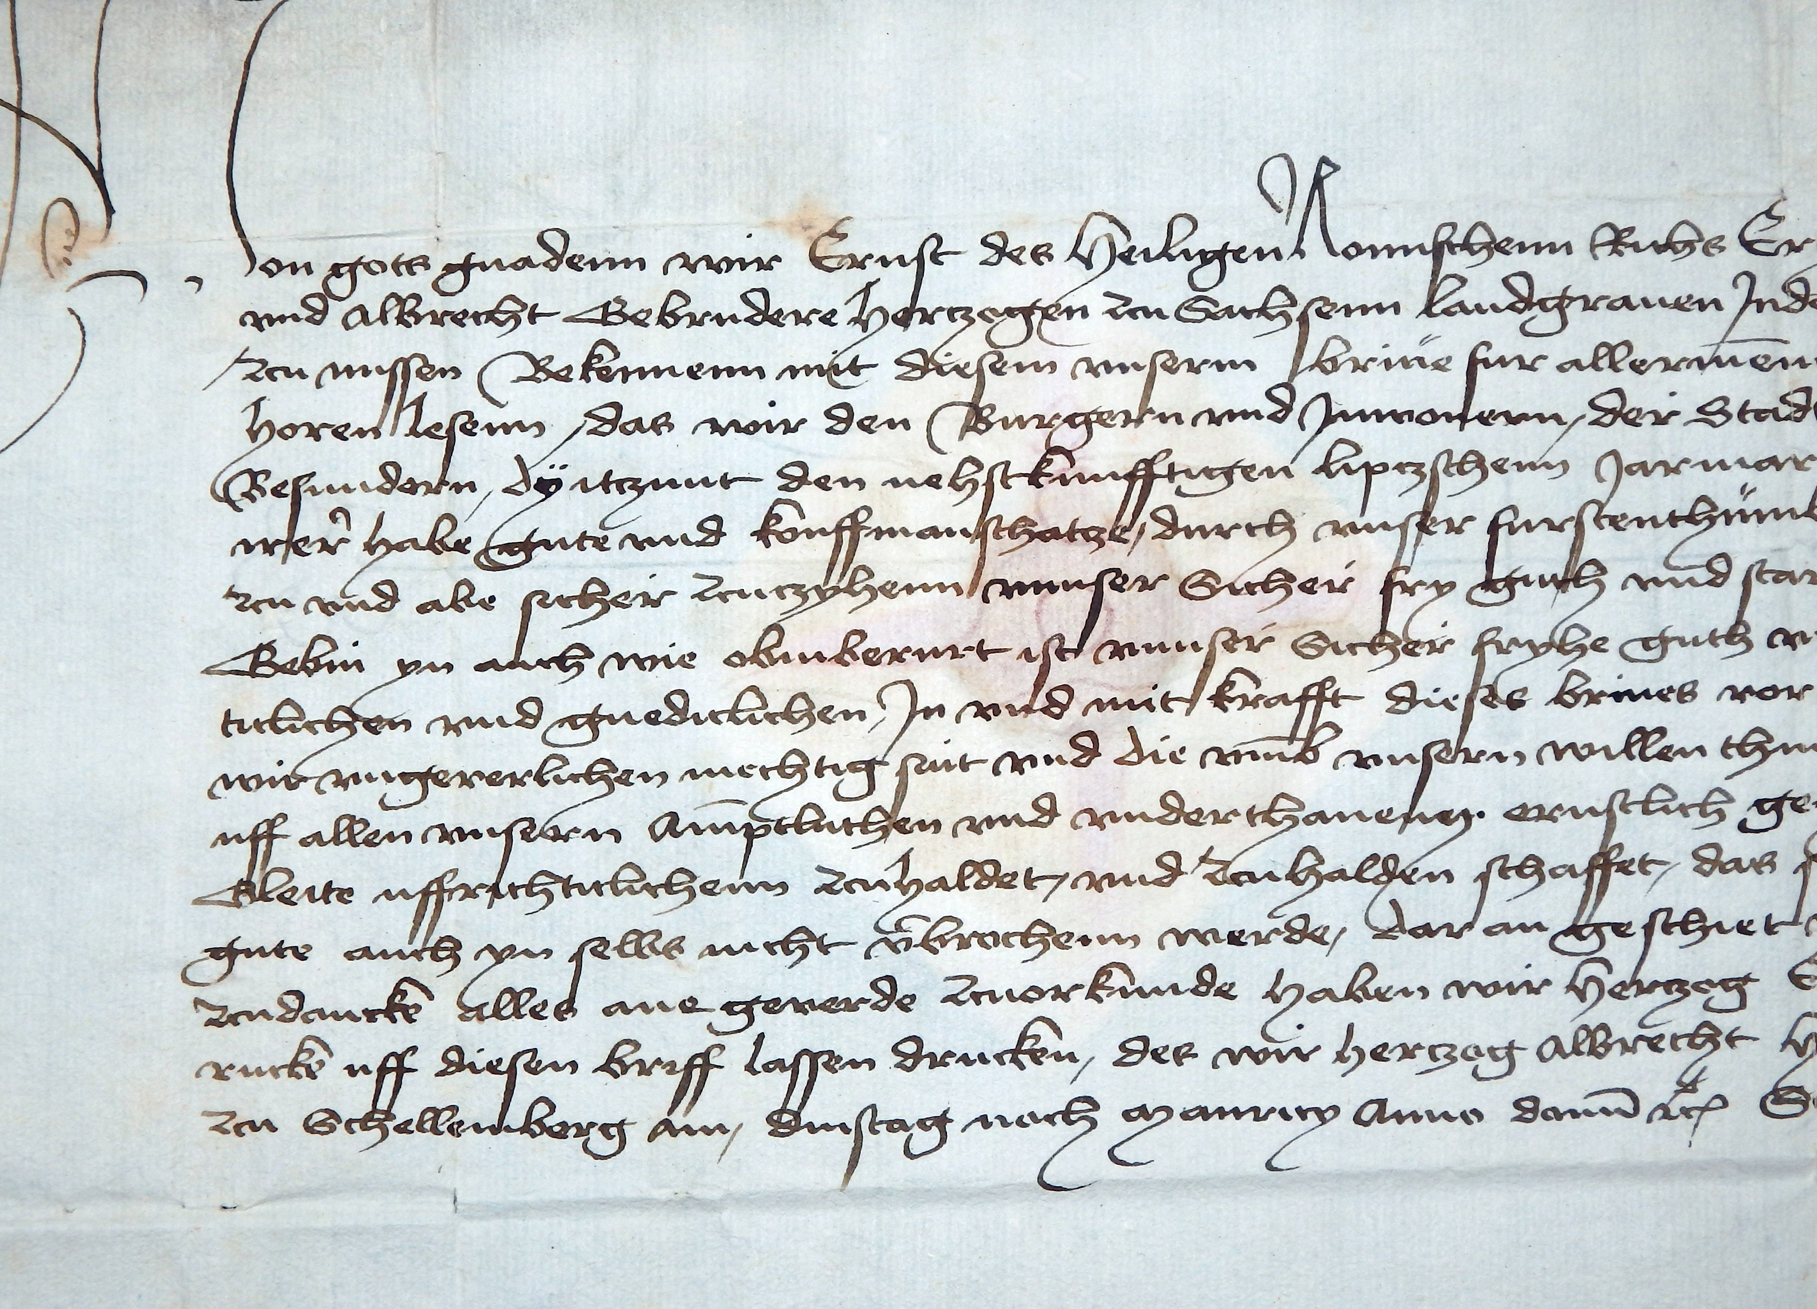 Von gots gnadenn wir Ernst des Heiligen Romischenn Richs Er
vnd Albrecht Gebrudere hertzogen zcu Sachssenn landgrauen Ind
zcu missen Bekennenn mit diesem vnserm briue fur allermen
horen lesenn, das wir den Burgern vnd Inwonern, der Stad
Besundern, dÿ itzunt den nehstkunfftigen lipczschenn Jarmar
irer habe gute vnd kouffmanschatze, durch vnser furstenthum
zcu vnd abe sicher zcuczyhenn vnnser Sicher fry geleith vnd star
Gebin yn auch wie obinberurt ist vnnser Sicher fryhe geleith v
ticlichen vnd gnediclichen, In vnd mit krafft dieses briues vor
wir vngeuerlichen mechtig sint vnd die vmb vnsern willen thu
uff allen vnsern Amptluthen vnd vnderthanenn ernstlich ge
Gleite uffrichticlichenn zcuhaldet, vnd zcuhalden schaffet, das
gute auch yn selbs nicht v̄brochenn werde, dar an geschiet
zcudancken alles ane geuerde zcuorkunde haben wir Hertzog E
rucke uff diesen briff lassen drucken, des wir hertzog Albrecht
zcu Schellemberg am, dinstag nach mauricy Anno domi zc